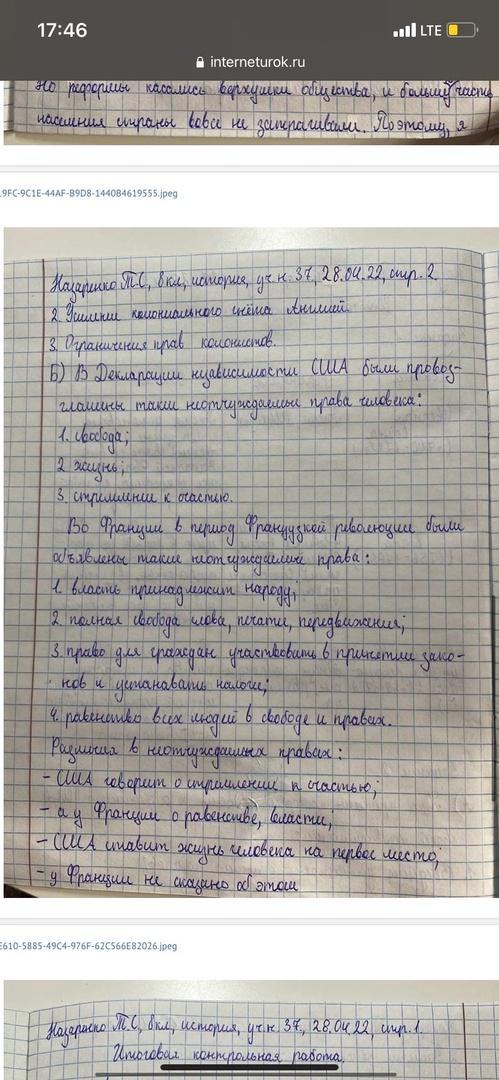 17:46
LTE
interneturok.ru
Но реформы касались верхушки общества, и большую часть
населения страны вовсе не затрагивали. Поэтому, я
19FC-9C1E-44AF-B9D8-1440B4619555.jpeg
Назаренко Т.С, 8кл, история, уч.н. 37, 28.04.22, стр. 2
2. Усиление колониального гнёта Англией.
3. Ограничения прав колонистов.
Б) В Декларации независимости США были провоз-
глашены такие неотчуждаемые права человека:
1. свобода;
2 жизнь;
3. стремление к счастью.
Во Франции в период Французкой революции были
объявлены такие неотчуждаемые права:
1. власть принадлежит народу;
2. полная свобода слова, печати, передвижения;
3. право для граждан участвовать в принятии зако-
нов и устанавать налоги;
4. равенство всех людей в свободе и правах.
Различия в неотчуждаемых правах:
- США говорит о стремлении к счастью;
- а у Франции о равенстве, власти,
- США ставит жизнь человека на первое место;
- у Франции не сказано об этом
E610-5885-49C4-976F-62C566E82026.jpeg
Назаренко Т.С, 8кл, история, уч.н. 37, 28.04.22, стр.1.
Итоговая контрольная работа